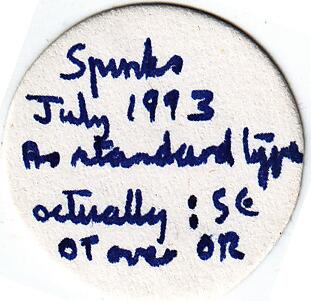 Spinks
July 1993
As standard type
actually : SE
OT over OR